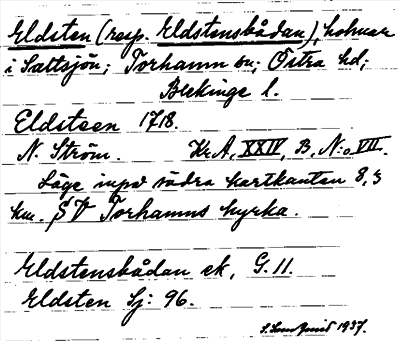 Eldsten (resp. Eldstensbådan), holmar
i Saltsjön; Torhamn sn; Östra hd;
Blekinge l.
Eldsteen 1718.
N. Ström. Kr.A, XXIV, B, N:o VII.
Läge invid södra kartkanten 8,3
km. SV Torhamns kyrka.
Eldstensbådan ek, G. 11.
Eldsten Sj: 96.
1937.